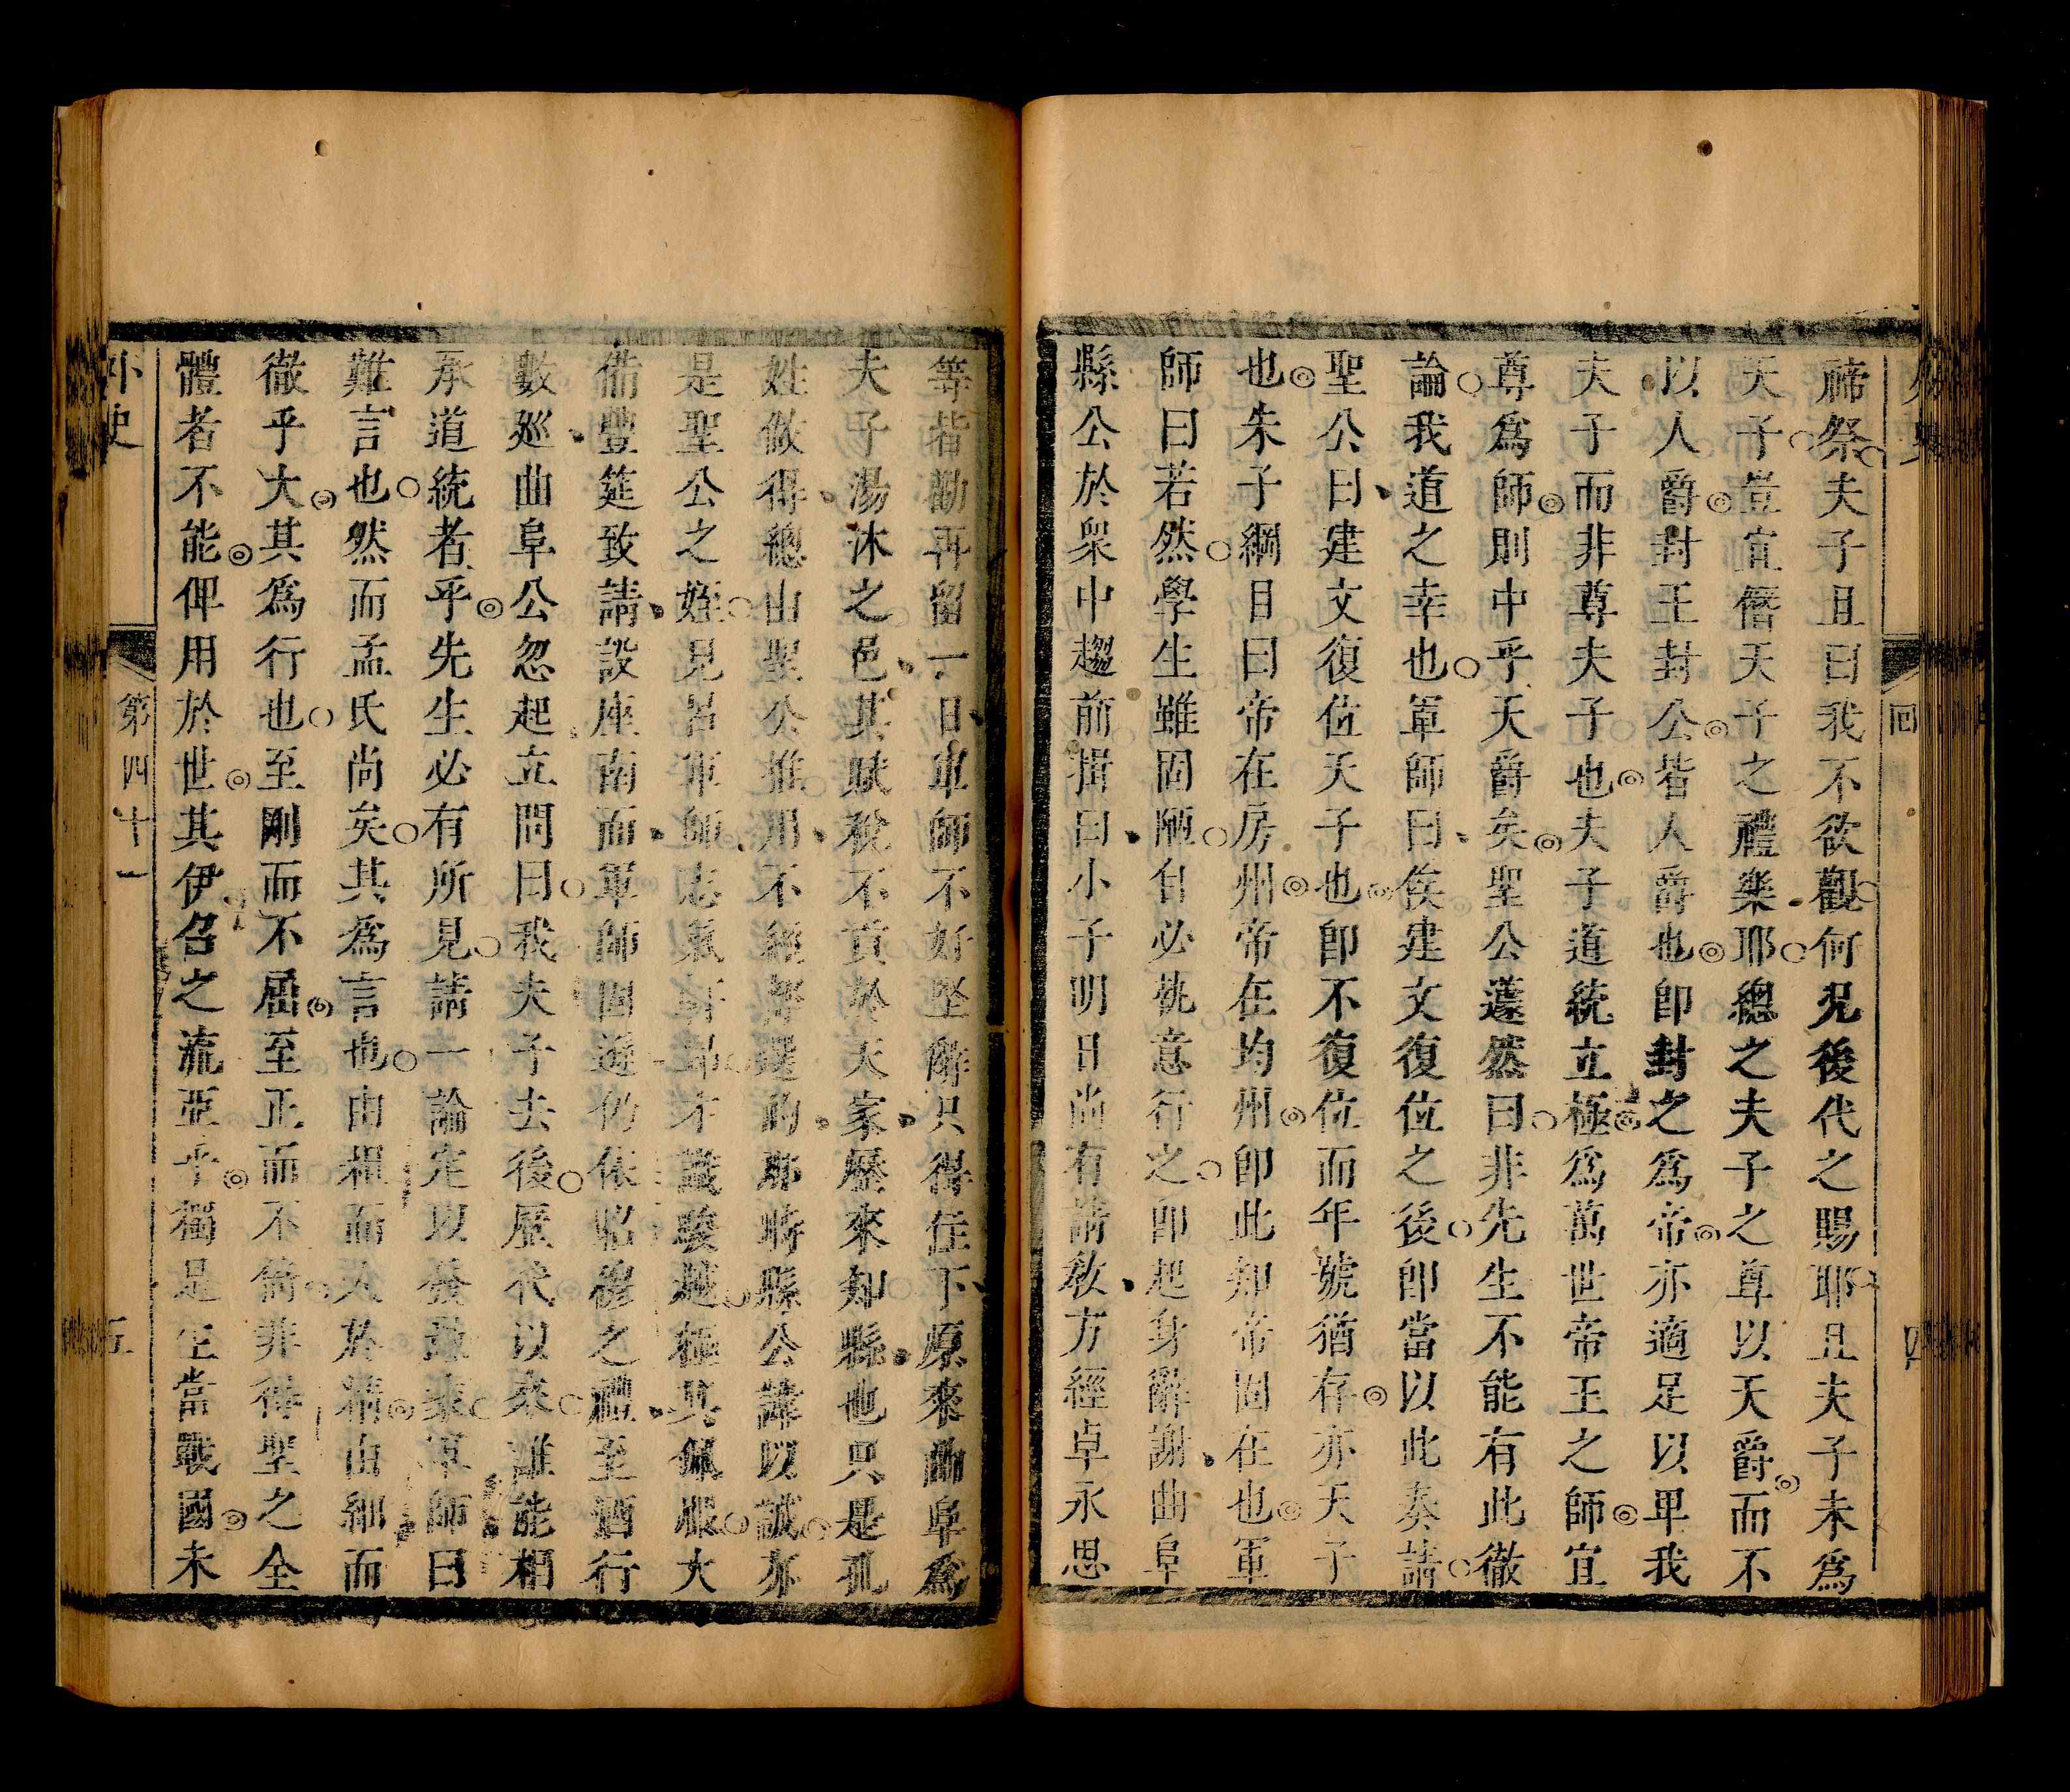 禘祭夫子且曰我不欲觀何况後代之賜耶且夫子未爲
天子豈宜僭天子之禮樂耶總之夫子之尊以天爵而不
以人爵封王封公皆人爵也卽封之爲帝亦適足以卑我
夫子而非尊夫子也夫子道統立極爲萬世帝王之師宜
尊爲師則中乎天爵矣聖公蘧然曰非先生不能有此徹
論我道之幸也軍師曰俟建文復位之後卽當以此奏請
聖公曰建文復位天子也卽不復位而年號猶存亦天子
也朱子綱目曰帝在房州帝在均州卽此知帝固在也軍
師曰若然學生雖固陋自必執意行之卽起身辭謝曲阜
縣公於衆中趨前揖曰小子明日尚有請敎方經卓永思
回
四
等皆勸再留一日軍師不好堅辭只得住下原來曲阜爲
夫子湯沐之邑其賦稅不貢於天家歷來知縣也只是孔
姓做得總由聖公推用不經部選的那時縣公諱以誠亦
是聖公之姪見呂軍師志氣軒昂才識駿越極其佩服大
備豐筵致請設座南面軍師固遜仍依昭穆之禮至酒行
數廵曲阜公忽起立問曰我夫子去後歷代以來誰能相
承道統者乎先生必有所見請一論定以發蒙軍師曰
難言也然而孟氏尚矣其爲言也由粗而入於精由細而
徹乎大其爲行也至剛而不屈至正而不倚非得聖之全
體者不能俾用於世其伊召之流亞乎獨是生當戰國未
外史
第四十一
五